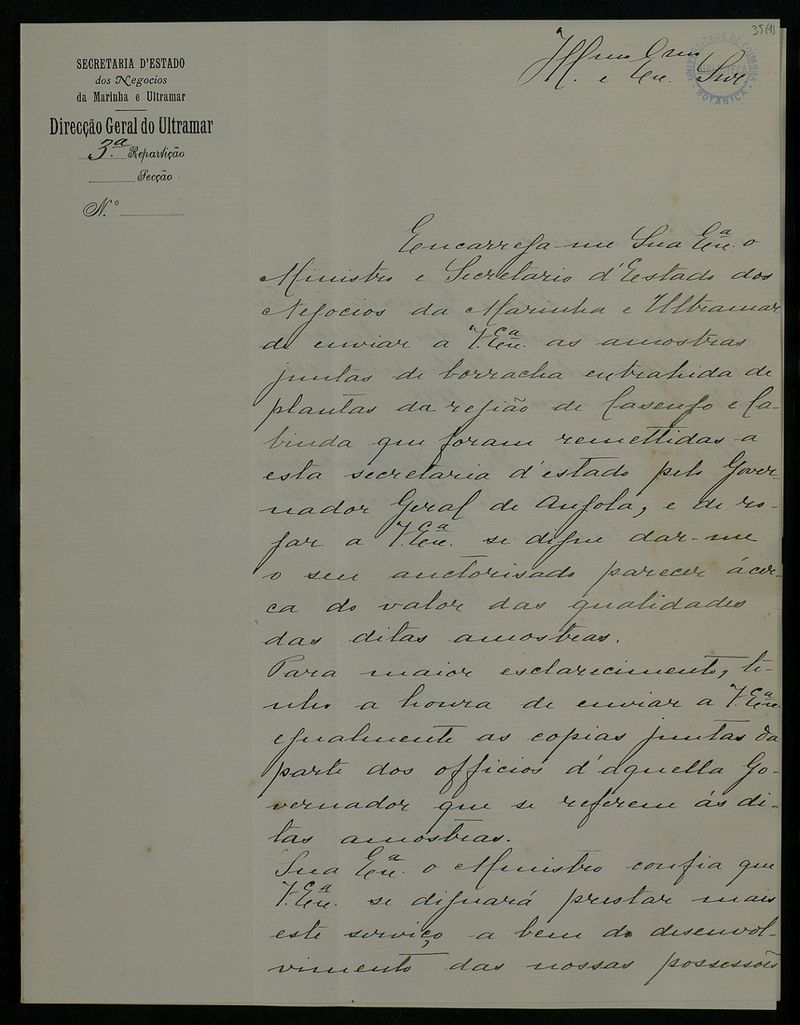 35(1)
SECRETARIA D'ESTADO
dos Negocios
da Marinha e Ultramar
Direcção Geral do Ultramar
3.ª Repartição
Secção
N.º
Illmo e Exmo Snr
UNIVERSIDADE DE COIMBRA
BIBLIOTECA
BOTANICA
Encarrega-me Sua Ex.ª o
Ministro e Secretario d'Estado dos
Negocios da Marinha e Ultramar
de enviar a V. Ex.cª as amostras
juntas de borracha extrahida de
plantas da região de Casengo e Ca-
binda que foram remettidas a
esta secretaria d'estado pelo Gover-
nador Geral de Angola, e de ro-
gar a V. Ex.cª se digne dar-me
o seu auctorisado parecer ácer-
ca do valor das qualidades
das ditas amostras.
Para maior esclarecimento, te-
nho a honra de enviar a V. Ex.cª
egualmente as copias juntas da
parte dos officios d'aquella Go-
vernador que se referem ás di-
tas amostras.
Sua Ex.ª o Ministro confia que
V. Ex.cª se dignará prestar mais
este serviço, a bem do desenvol-
vimento das nossas possessões